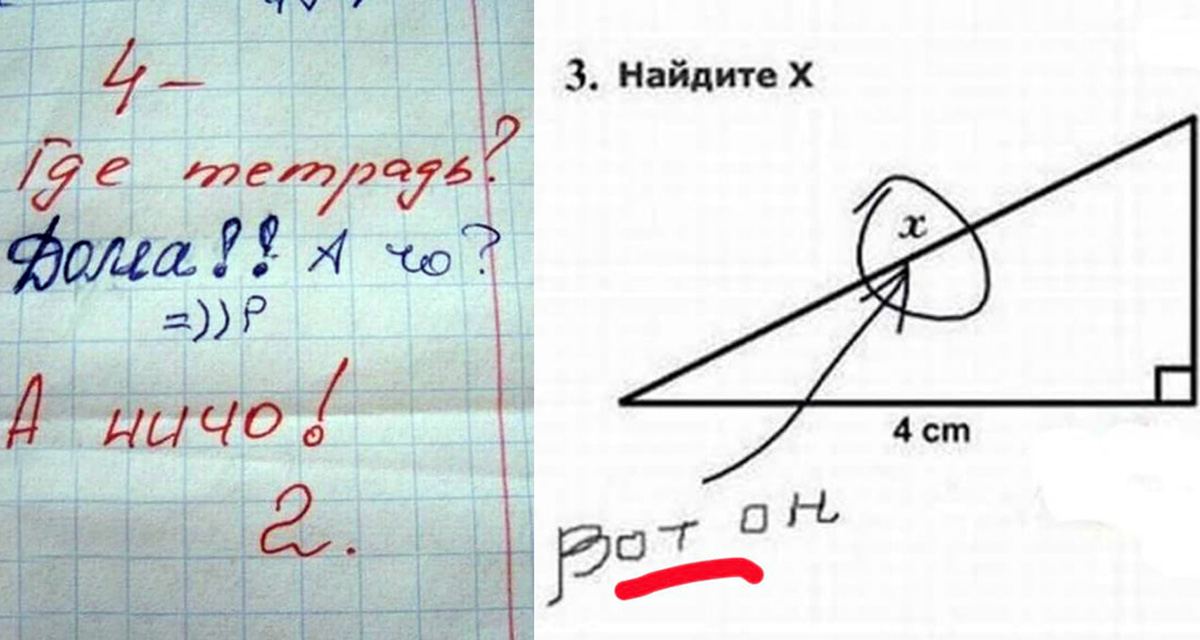 4-
Где тетрадь?
Дома!! А чо?
=))Р
А ничо!
2.
3. Найдите X
x
4 cm
Вот он